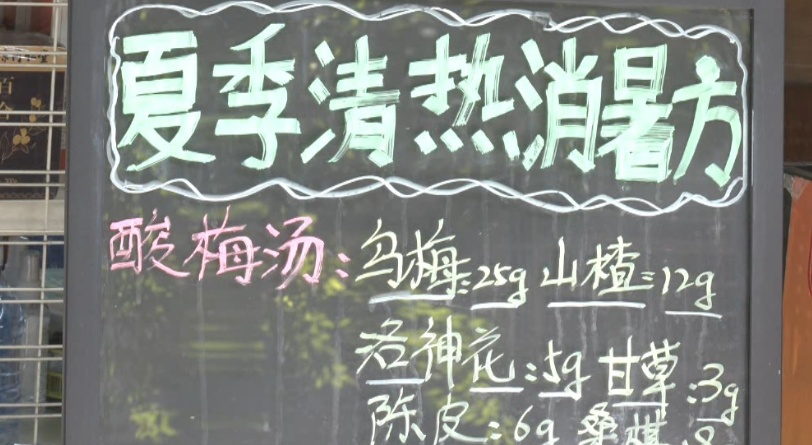 夏季清热消暑方
酸梅汤：乌梅：25g 山楂：12g
洛神花：5g 甘草：3g
陈皮：6g 桑椹：